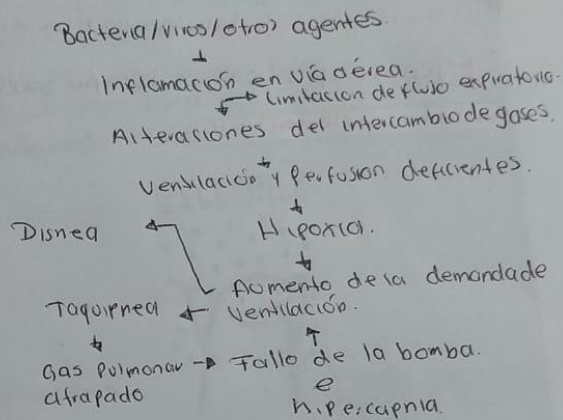 Bacteria/virus/otros agentes.
Inflamación en vía aérea.
Limitación de flujo espiratorio.
Alteraciones del intercambio de gases.
Ventilación y Perfusion deficientes.
Disnea
Hipoxia.
Aumento de la demanda de
Taquipnea
Ventilación.
Gas Pulmonar
atrapado
Fallo de la bomba.
e
hipercapnia.